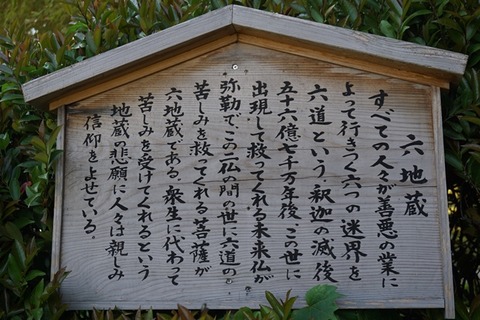 六地蔵
すべての人々が善悪の業に
よって行きつく六つの迷界を
六道という釈迦の滅後
五十六億七千万年後、この世に
出現して救ってくれる未来仏が
弥勒で、この二仏の間の世に六道の
苦しみを救ってくれる菩薩が
六地蔵である。衆生に代わって
苦しみを受けてくれるという
地蔵の悲願に人々は親しみ
信仰をよせている。